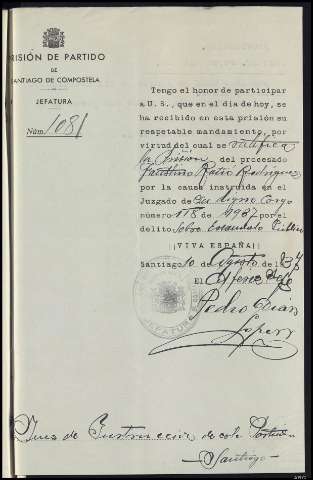 PRISIÓN DE PARTIDO
DE
SANTIAGO DE COMPOSTELA
JEFATURA
Núm. 1081
Tengo el honor de participar
a U.S., que en el día de hoy, se
ha recibido en esta prisión su
respetable mandamiento, por
virtud del cual se ratifica
la prisión, del procesado
Faustino Rodríguez
por la causa instruida en el
Juzgado de su digno cargo
número 118 de 1937 por el
delito sobre Escándalo Público
¡¡VIVA ESPAÑA!!
Santiago 10 de Agosto de 1937
El
Pedro
López
JEFATURA
Juez de Instrucción de este Partido
Santiago